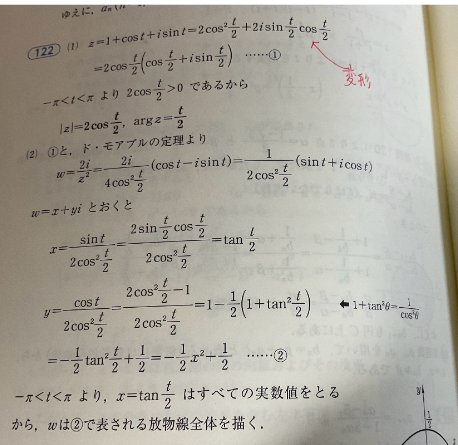 ゆえに,
122 (1) z=1+cost+isint=2cos²t/2+2isint/2cost/2
=2cost/2(cost/2+isint/2) ……①
変形
-π<t<π より 2cost/2>0 であるから
|z|=2cost/2, argz=t/2
(2) ①と,ド・モアブルの定理より
w=2i/z²=2i/4cos²t/2(cost-isint)=1/2cos²t/2(sint+icost)
w=x+yi とおくと
x=sint/2cos²t/2=2sint/2cost/2/2cos²t/2=tant/2
y=cost/2cos²t/2=2cos²t/2-1/2cos²t/2=1-1/2(1+tan²t/2) ←1+tan²θ=1/cos²θ
=-1/2tan²t/2+1/2=-1/2x²+1/2 ……②
-π<t<π より, x=tant/2 はすべての実数値をとる
から, wは②で表される放物線全体を描く.
y
1/2